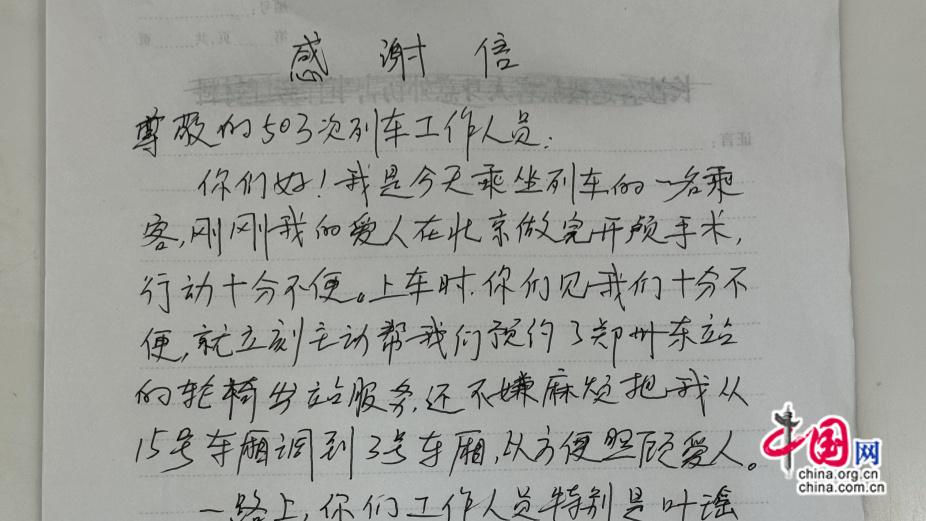 感谢信
尊敬的503次列车工作人员:
你们好!我是今天乘坐列车的一名乘
客,刚刚我的爱人在北京做完开颅手术,
行动十分不便。上车时,你们见我们十分不
便,就立刻主动帮我们预约了郑州东站
的轮椅出站服务,还不嫌麻烦把我从
15号车厢调到3号车厢,以方便照顾爱人。
一路上,你们工作人员特别是叶谣
中国网
china.org.cn
china.com.cn